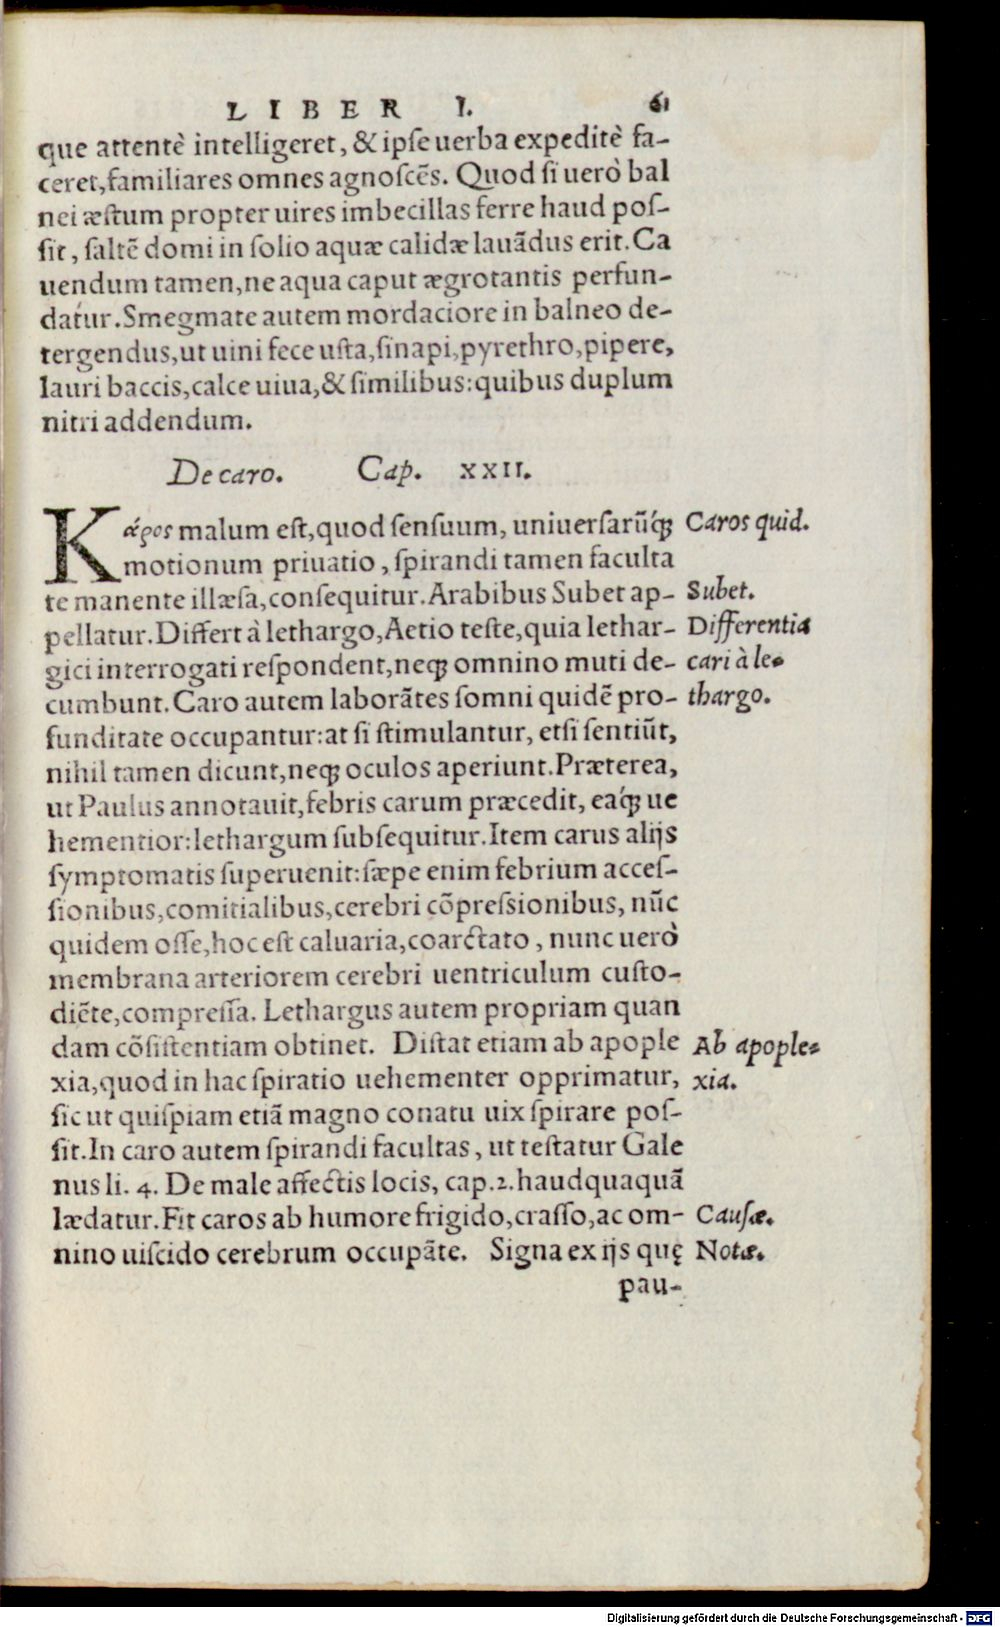 LIBER I. 61
que attentè intelligeret, & ipse uerba expeditè fa-
ceret, familiares omnes agnoscēs. Quod si uerò bal
nei æstum propter uires imbecillas ferre haud pos-
sit, saltē domi in solio aquæ calidæ lauādus erit. Ca
uendum tamen, ne aqua caput ægrotantis perfun-
datur. Smegmate autem mordaciore in balneo de-
tergendus, ut uini fece usta, sinapi, pyrethro, pipere,
lauri baccis, calce uiua, & similibus: quibus duplum
nitri addendum.
De caro. Cap. XXII.
Κάρος malum est, quod sensuum, uniuersarūq́ꝫ Caros quid.
motionum priuatio, spirandi tamen faculta
te manente illæsa, consequitur. Arabibus Subet ap- Subet.
pellatur. Differt à lethargo, Aetio teste, quia lethar- Differentia
gici interrogati respondent, neqꝫ omnino muti de- cari à le-
cumbunt. Caro autem laborātes somni quidē pro- thargo.
funditate occupantur: at si stimulantur, etsi sentiūt,
nihil tamen dicunt, neqꝫ oculos aperiunt. Præterea,
ut Paulus annotauit, febris carum præcedit, eaq́ꝫ ue
hementior: lethargum subsequitur. Item carus alijs
symptomatis superuenit: sæpe enim febrium acces-
sionibus, comitialibus, cerebri cōpressionibus, nūc
quidem osse, hoc est caluaria, coarctato, nunc uerò
membrana arteriorem cerebri uentriculum custo-
diēte, compressa. Lethargus autem propriam quan
dam cōsistentiam obtinet. Distat etiam ab apople Ab apople-
xia, quod in hac spiratio uehementer opprimatur, xia.
sic ut quispiam etiā magno conatu uix spirare pos-
sit. In caro autem spirandi facultas, ut testatur Gale
nus li. 4. De male affectis locis, cap. 2. haudquaquā
lædatur. Fit caros ab humore frigido, crasso, ac om- Causæ.
nino uiscido cerebrum occupāte. Signa ex ijs quę Notæ.
pau-
Digitalisierung gefördert durch die Deutsche Forschungsgemeinschaft - DFG